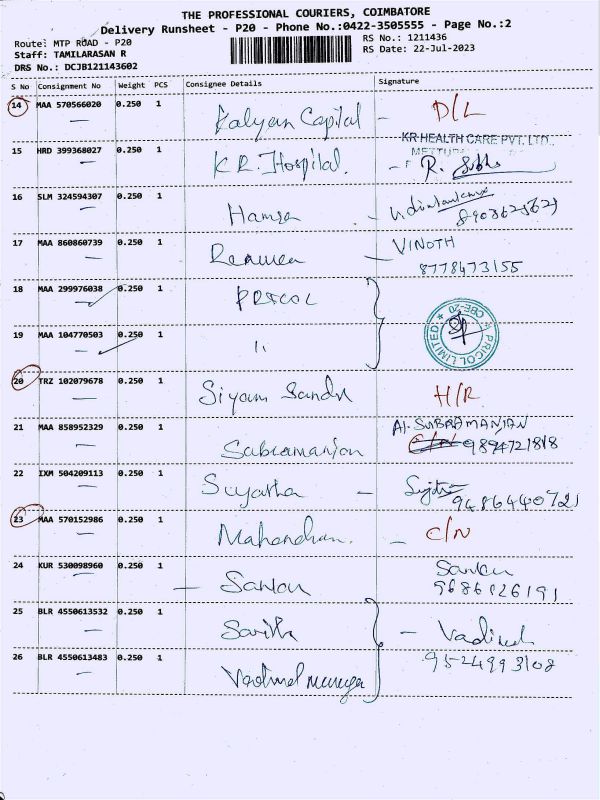 THE PROFESSIONAL COURIERS, COIMBATORE
Delivery Runsheet - P20 - Phone No.:0422-3505555 - Page No.:2
Route: MTP ROAD - P20
RS No.: 1211436
Staff: TAMILARASAN R
RS Date: 22-Jul-2023
DRS No.: DCJB121143602
S No Consignment No Weight PCS Consignee Details Signature
14 MAA 570566020 0.250 1 Kalyan Capital - D/L
KR HEALTH CARE PVT. LTD.,
15 HRD 399368027 0.250 1 K.R. Hospital. - R.
16 SLM 324594307 0.250 1 Hamsa -
17 MAA 860860739 0.250 1 VINOTH
8778473155
18 MAA 299976038 0.250 1 PRICOL
PRICOL LIMITED * CBE-20 *
19 MAA 104770503 0.250 1 "
20 TRZ 102079678 0.250 1 Siyam H/R
21 MAA 858952329 0.250 1 Subramanian A. SUBRAMANIAN
C/N 9894721818
22 IXM 504209113 0.250 1 Sujatha -
9486440721
23 MAA 570152986 0.250 1 - C/N
24 KUR 530098960 0.250 1 -
9686126191
25 BLR 4550613532 0.250 1 -
26 BLR 4550613483 0.250 1 9524993108